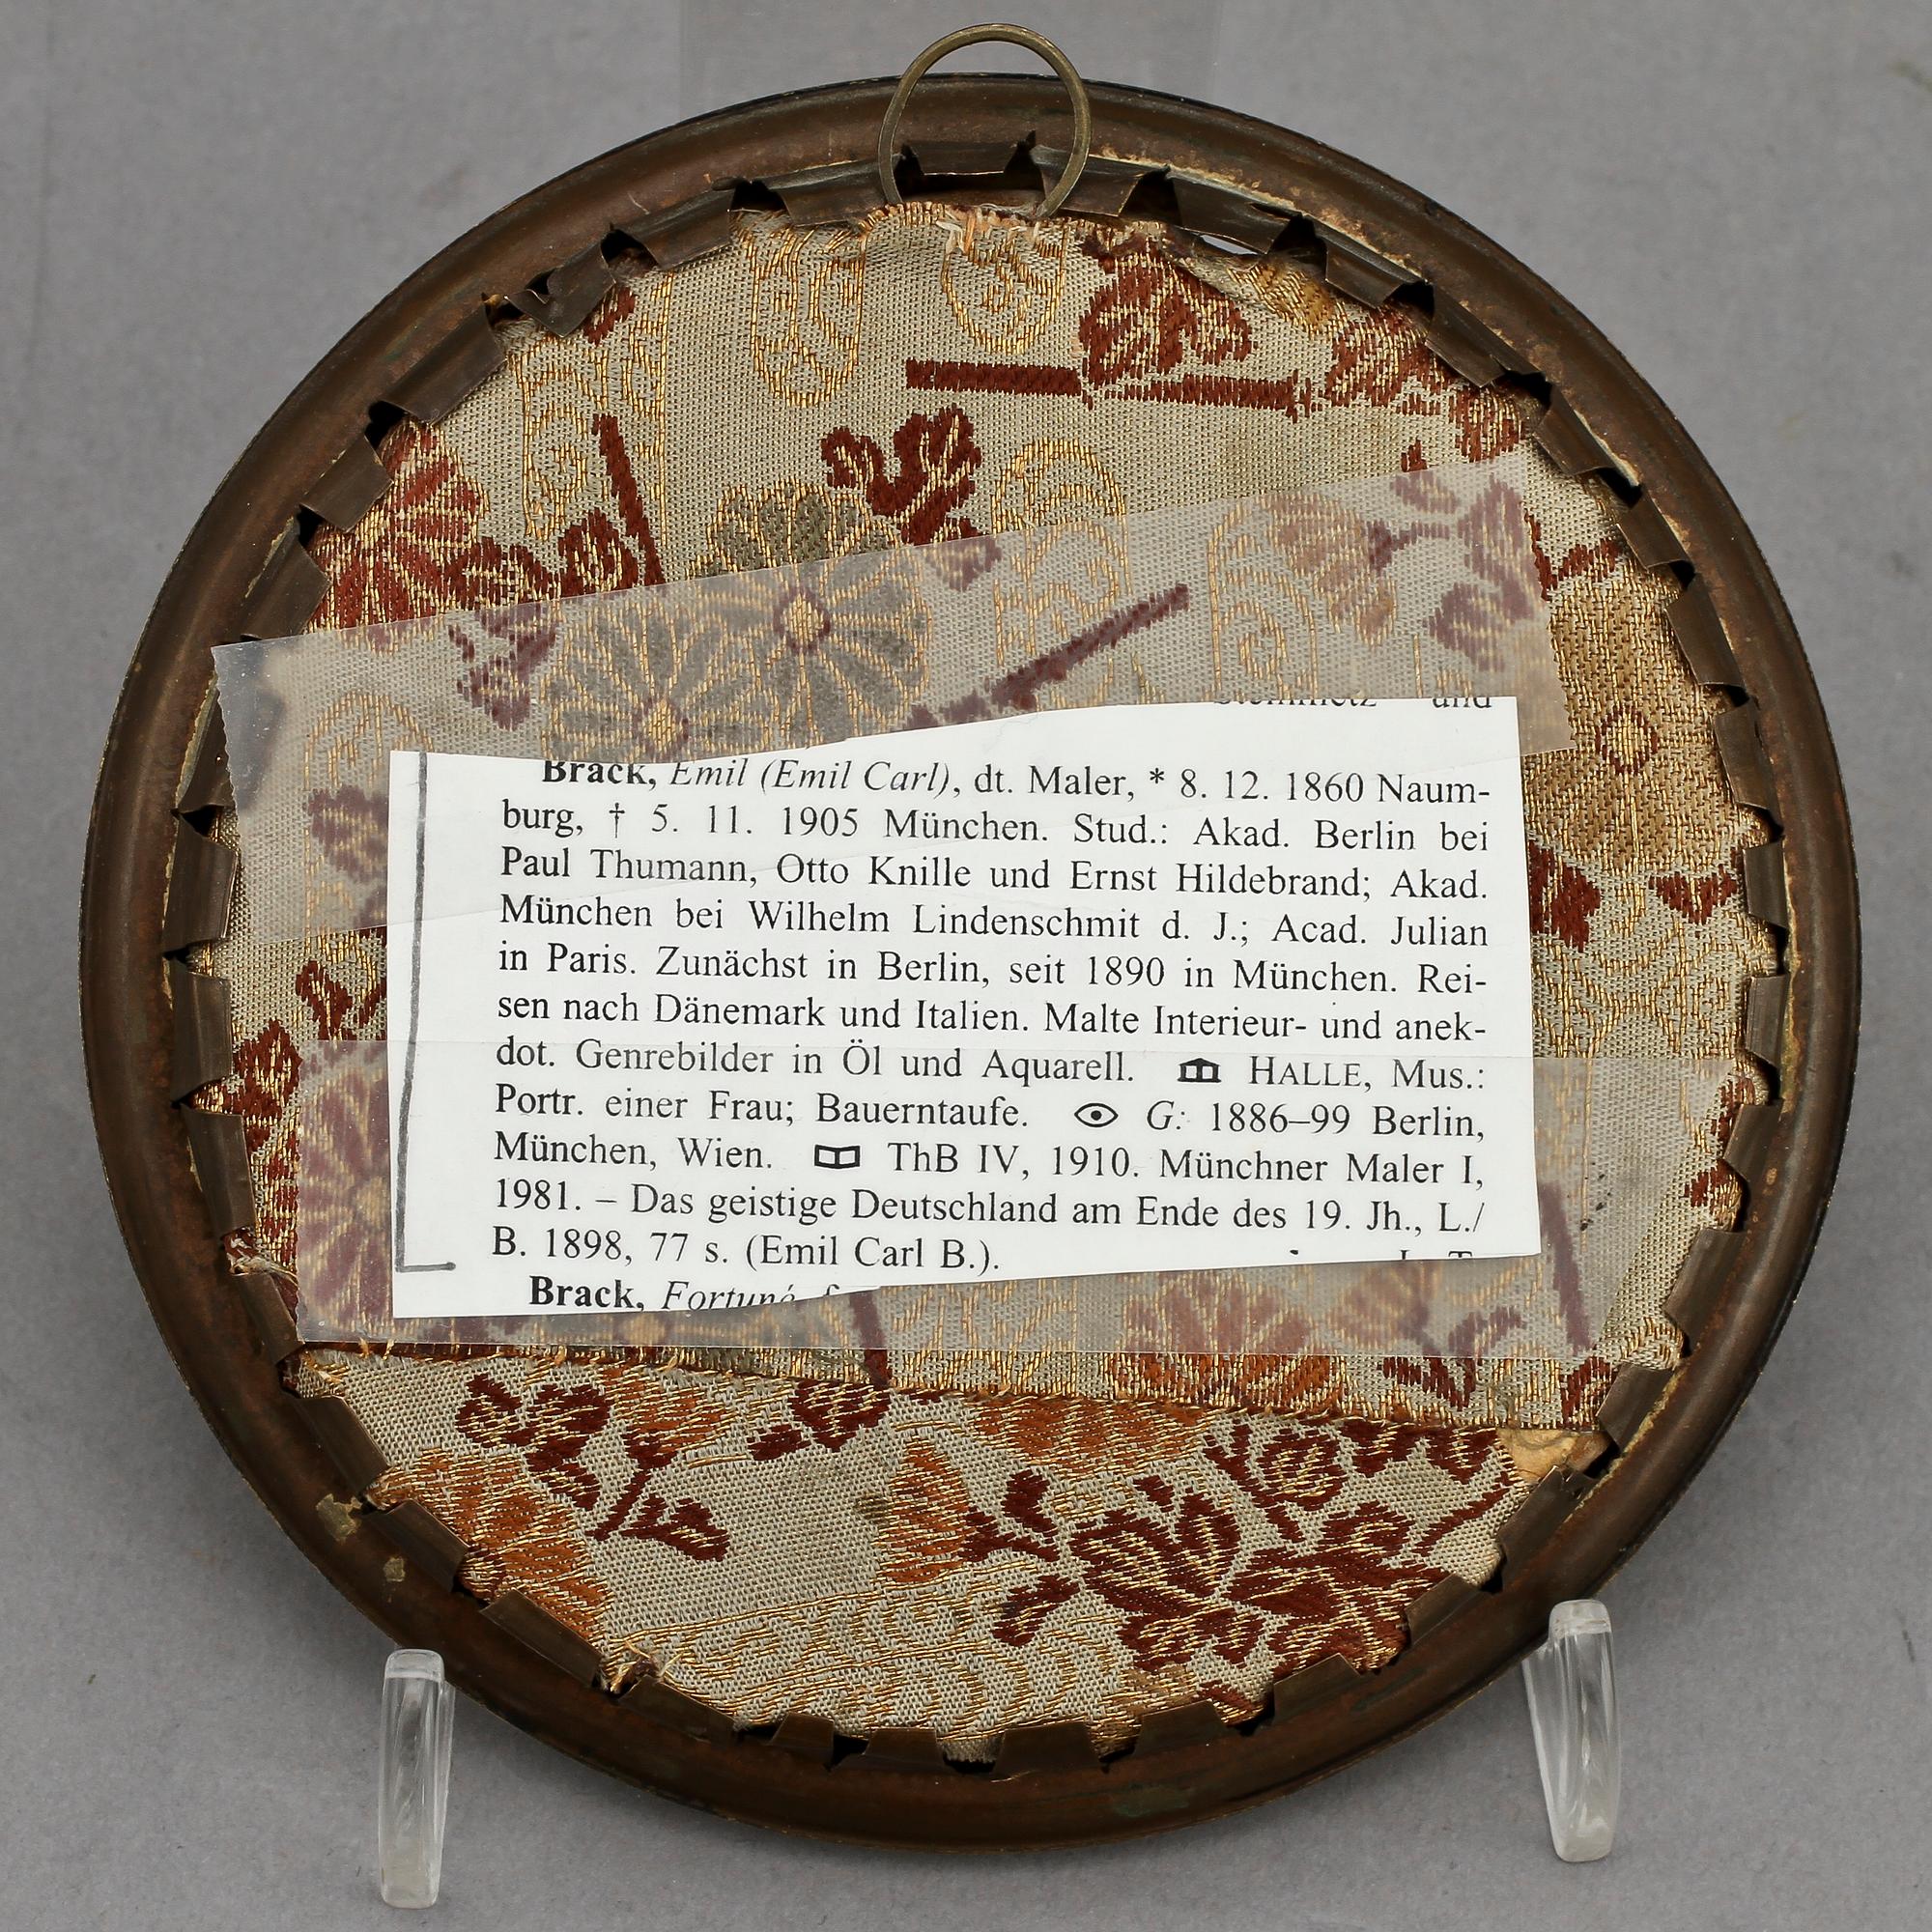 und
Brack, Emil (Emil Carl), dt. Maler, * 8. 12. 1860 Naum-
burg, † 5. 11. 1905 München. Stud.: Akad. Berlin bei
Paul Thumann, Otto Knille und Ernst Hildebrand; Akad.
München bei Wilhelm Lindenschmit d. J.; Acad. Julian
in Paris. Zunächst in Berlin, seit 1890 in München. Rei-
sen nach Dänemark und Italien. Malte Interieur- und anek-
dot. Genrebilder in Öl und Aquarell. HALLE, Mus.:
Portr. einer Frau; Bauerntaufe. G: 1886–99 Berlin,
München, Wien. ThB IV, 1910. Münchner Maler I,
1981. – Das geistige Deutschland am Ende des 19. Jh., L./
B. 1898, 77 s. (Emil Carl B.).
Brack, Fortuné